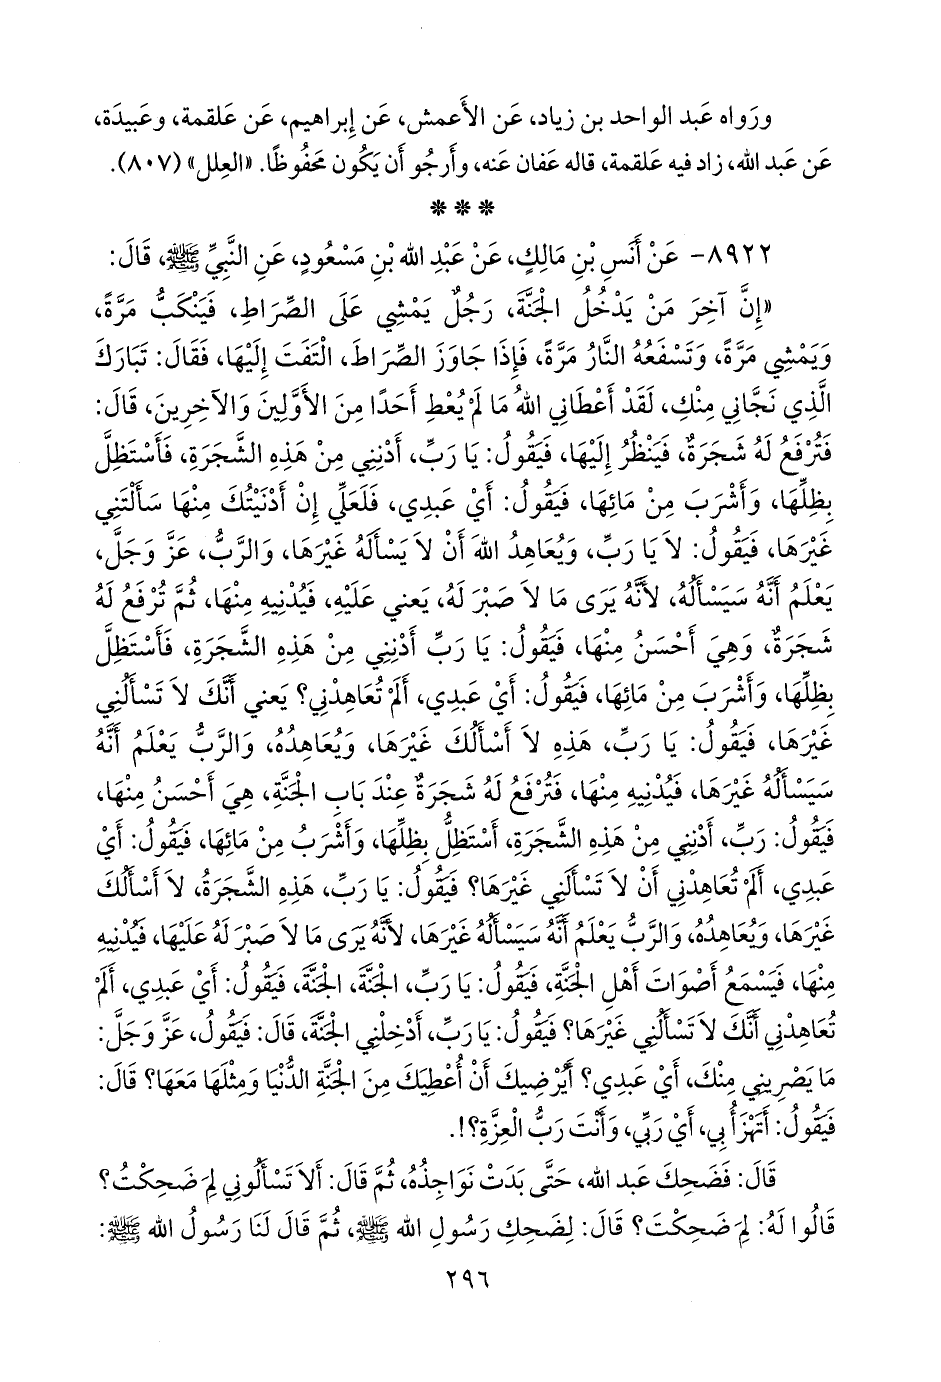 ورَواه عَبد الواحد بن زياد، عَن الأَعمش، عَن إِبراهيم، عَن عَلقمة، وعَبيدَة،
عَن عَبد الله، زاد فيه عَلقمة، قاله عَفان عَنه، وأَرجُو أَن يَكُون مَحَفُوظًا. «العِلل» (٨٠٧).
* * *
٨٩٢٢- عَنْ أَنَسِ بْنِ مَالِكٍ، عَنْ عَبْدِ الله بْنِ مَسْعُودٍ، عَنِ النَّبِيِّ ﷺ، قَالَ:
«إِنَّ آخِرَ مَنْ يَدْخُلُ الجَنَّةَ، رَجُلٌ يَمْشِي عَلَى الصِّرَاطِ، فَيَنْكَبُّ مَرَّةً،
وَيَمْشِي مَرَّةً، وَتَسْفَعُهُ النَّارُ مَرَّةً، فَإِذَا جَاوَزَ الصِّرَاطَ، الْتَفَتَ إِلَيْهَا، فَقَالَ: تَبَارَكَ
الَّذِي نَجَّانِي مِنْكِ، لَقَدْ أَعْطَانِي اللهُ مَا لَمْ يُعْطِ أَحَدًا مِنَ الأَوَّلِينَ وَالآخِرِينَ، قَالَ:
فَتُرْفَعُ لَهُ شَجَرَةٌ، فَيَنْظُرُ إِلَيْهَا، فَيَقُولُ: يَا رَبِّ، أَدْنِنِي مِنْ هَذِهِ الشَّجَرَةِ، فَأَسْتَظِلَّ
بِظِلِّهَا، وَأَشْرَبَ مِنْ مَائِهَا، فَيَقُولُ: أَيْ عَبدِي، فَلَعَلِّي إِنْ أَدْنَيْتُكَ مِنْهَا سَأَلْتَنِي
غَيْرَهَا، فَيَقُولُ: لاَ يَا رَبِّ، وَيُعَاهِدُ اللهَ أَنْ لاَ يَسْأَلَهُ غَيْرَهَا، وَالرَّبُّ، عَزَّ وَجَلَّ،
يَعْلَمُ أَنَّهُ سَيَسْأَلُهُ، لأَنَّهُ يَرَى مَا لاَ صَبْرَ لَهُ، يَعني عَلَيْهِ، فَيُدْنِيهِ مِنْهَا، ثُمَّ تُرْفَعُ لَهُ
شَجَرَةٌ، وَهِيَ أَحْسَنُ مِنْهَا، فَيَقُولُ: يَا رَبِّ أَدْنِنِي مِنْ هَذِهِ الشَّجَرَةِ، فَأَسْتَظِلَّ
بِظِلِّهَا، وَأَشْرَبَ مِنْ مَائِهَا، فَيَقُولُ: أَيْ عَبدِي، أَلَمْ تُعَاهِدْنِي؟ يَعني أَنَّكَ لاَ تَسْأَلُنِي
غَيْرَهَا، فَيَقُولُ: يَا رَبِّ، هَذِهِ لاَ أَسْأَلُكَ غَيْرَهَا، وَيُعَاهِدُهُ، وَالرَّبُّ يَعْلَمُ أَنَّهُ
سَيَسْأَلُهُ غَيْرَهَا، فَيُدْنِيهِ مِنْهَا، فَتُرْفَعُ لَهُ شَجَرَةٌ عِنْدَ بَابِ الجَنَّةِ، هِيَ أَحْسَنُ مِنْهَا،
فَيَقُولُ: رَبِّ، أَدْنِنِي مِنْ هَذِهِ الشَّجَرَةِ، أَسْتَظِلُّ بِظِلِّهَا، وَأَشْرَبُ مِنْ مَائِهَا، فَيَقُولُ: أَيْ
عَبدِي، أَلَمْ تُعَاهِدْنِي أَنْ لاَ تَسْأَلَنِي غَيْرَهَا؟ فَيَقُولُ: يَا رَبِّ، هَذِهِ الشَّجَرَةُ، لاَ أَسْأَلُكَ
غَيْرَهَا، وَيُعَاهِدُهُ، وَالرَّبُّ يَعْلَمُ أَنَّهُ سَيَسْأَلُهُ غَيْرَهَا، لأَنَّهُ يَرَى مَا لاَ صَبْرَ لَهُ عَلَيْهَا، فَيُدْنِيهِ
مِنْهَا، فَيَسْمَعُ أَصْوَاتَ أَهْلِ الجَنَّةِ، فَيَقُولُ: يَا رَبِّ، الجَنَّةَ، الجَنَّةَ، فَيَقُولُ: أَيْ عَبدِي، أَلَمْ
تُعَاهِدْنِي أَنَّكَ لاَ تَسْأَلُنِي غَيْرَهَا؟ فَيَقُولُ: يَا رَبِّ، أَدْخِلْنِي الجَنَّةَ، قَالَ: فَيَقُولُ، عَزَّ وَجَلَّ:
مَا يَصْرِينِي مِنْكَ، أَيْ عَبدِي؟ أَيُرْضِيكَ أَنْ أُعْطِيَكَ مِنَ الجَنَّةِ الدُّنْيَا وَمِثْلَهَا مَعَهَا؟ قَالَ:
فَيَقُولُ: أَتَهْزَأُ بِي، أَيْ رَبِّي، وَأَنْتَ رَبُّ الْعِزَّةِ؟!.
قَالَ: فَضَحِكَ عَبد الله، حَتَّى بَدَتْ نَوَاجِذُهُ، ثُمَّ قَالَ: أَلاَ تَسْأَلُونِي لِمَ ضَحِكْتُ؟
قَالُوا لَهُ: لِمَ ضَحِكْتَ؟ قَالَ: لِضَحِكِ رَسُولِ الله ﷺ، ثُمَّ قَالَ لَنَا رَسُولُ الله ﷺ:
٢٩٦